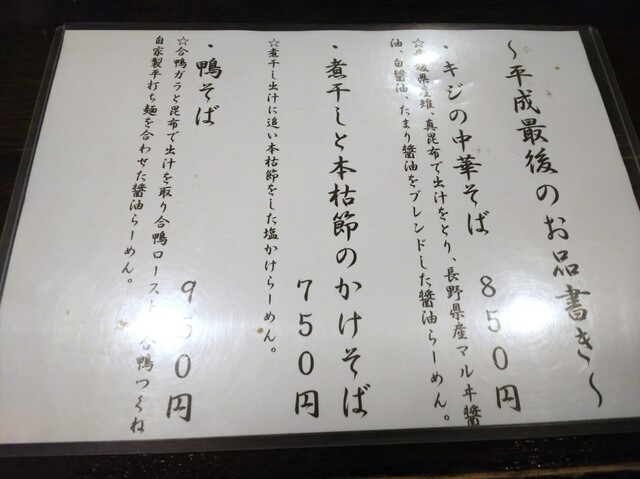 ～平成最後のお品書き～
・キジの中華そば
850円
☆愛媛県産雉、真昆布で出汁をとり、長野県産マルヰ醤
油、白醤油、たまり醤油をブレンドした醤油らーめん。
・煮干しと本枯節のかけそば
750円
☆煮干し出汁に追い本枯節をした塩かけらーめん。
・鴨そば
950円
☆合鴨ガラと昆布で出汁を取り合鴨ロースト 合鴨つくね
自家製平打ち麺を合わせた醤油らーめん。